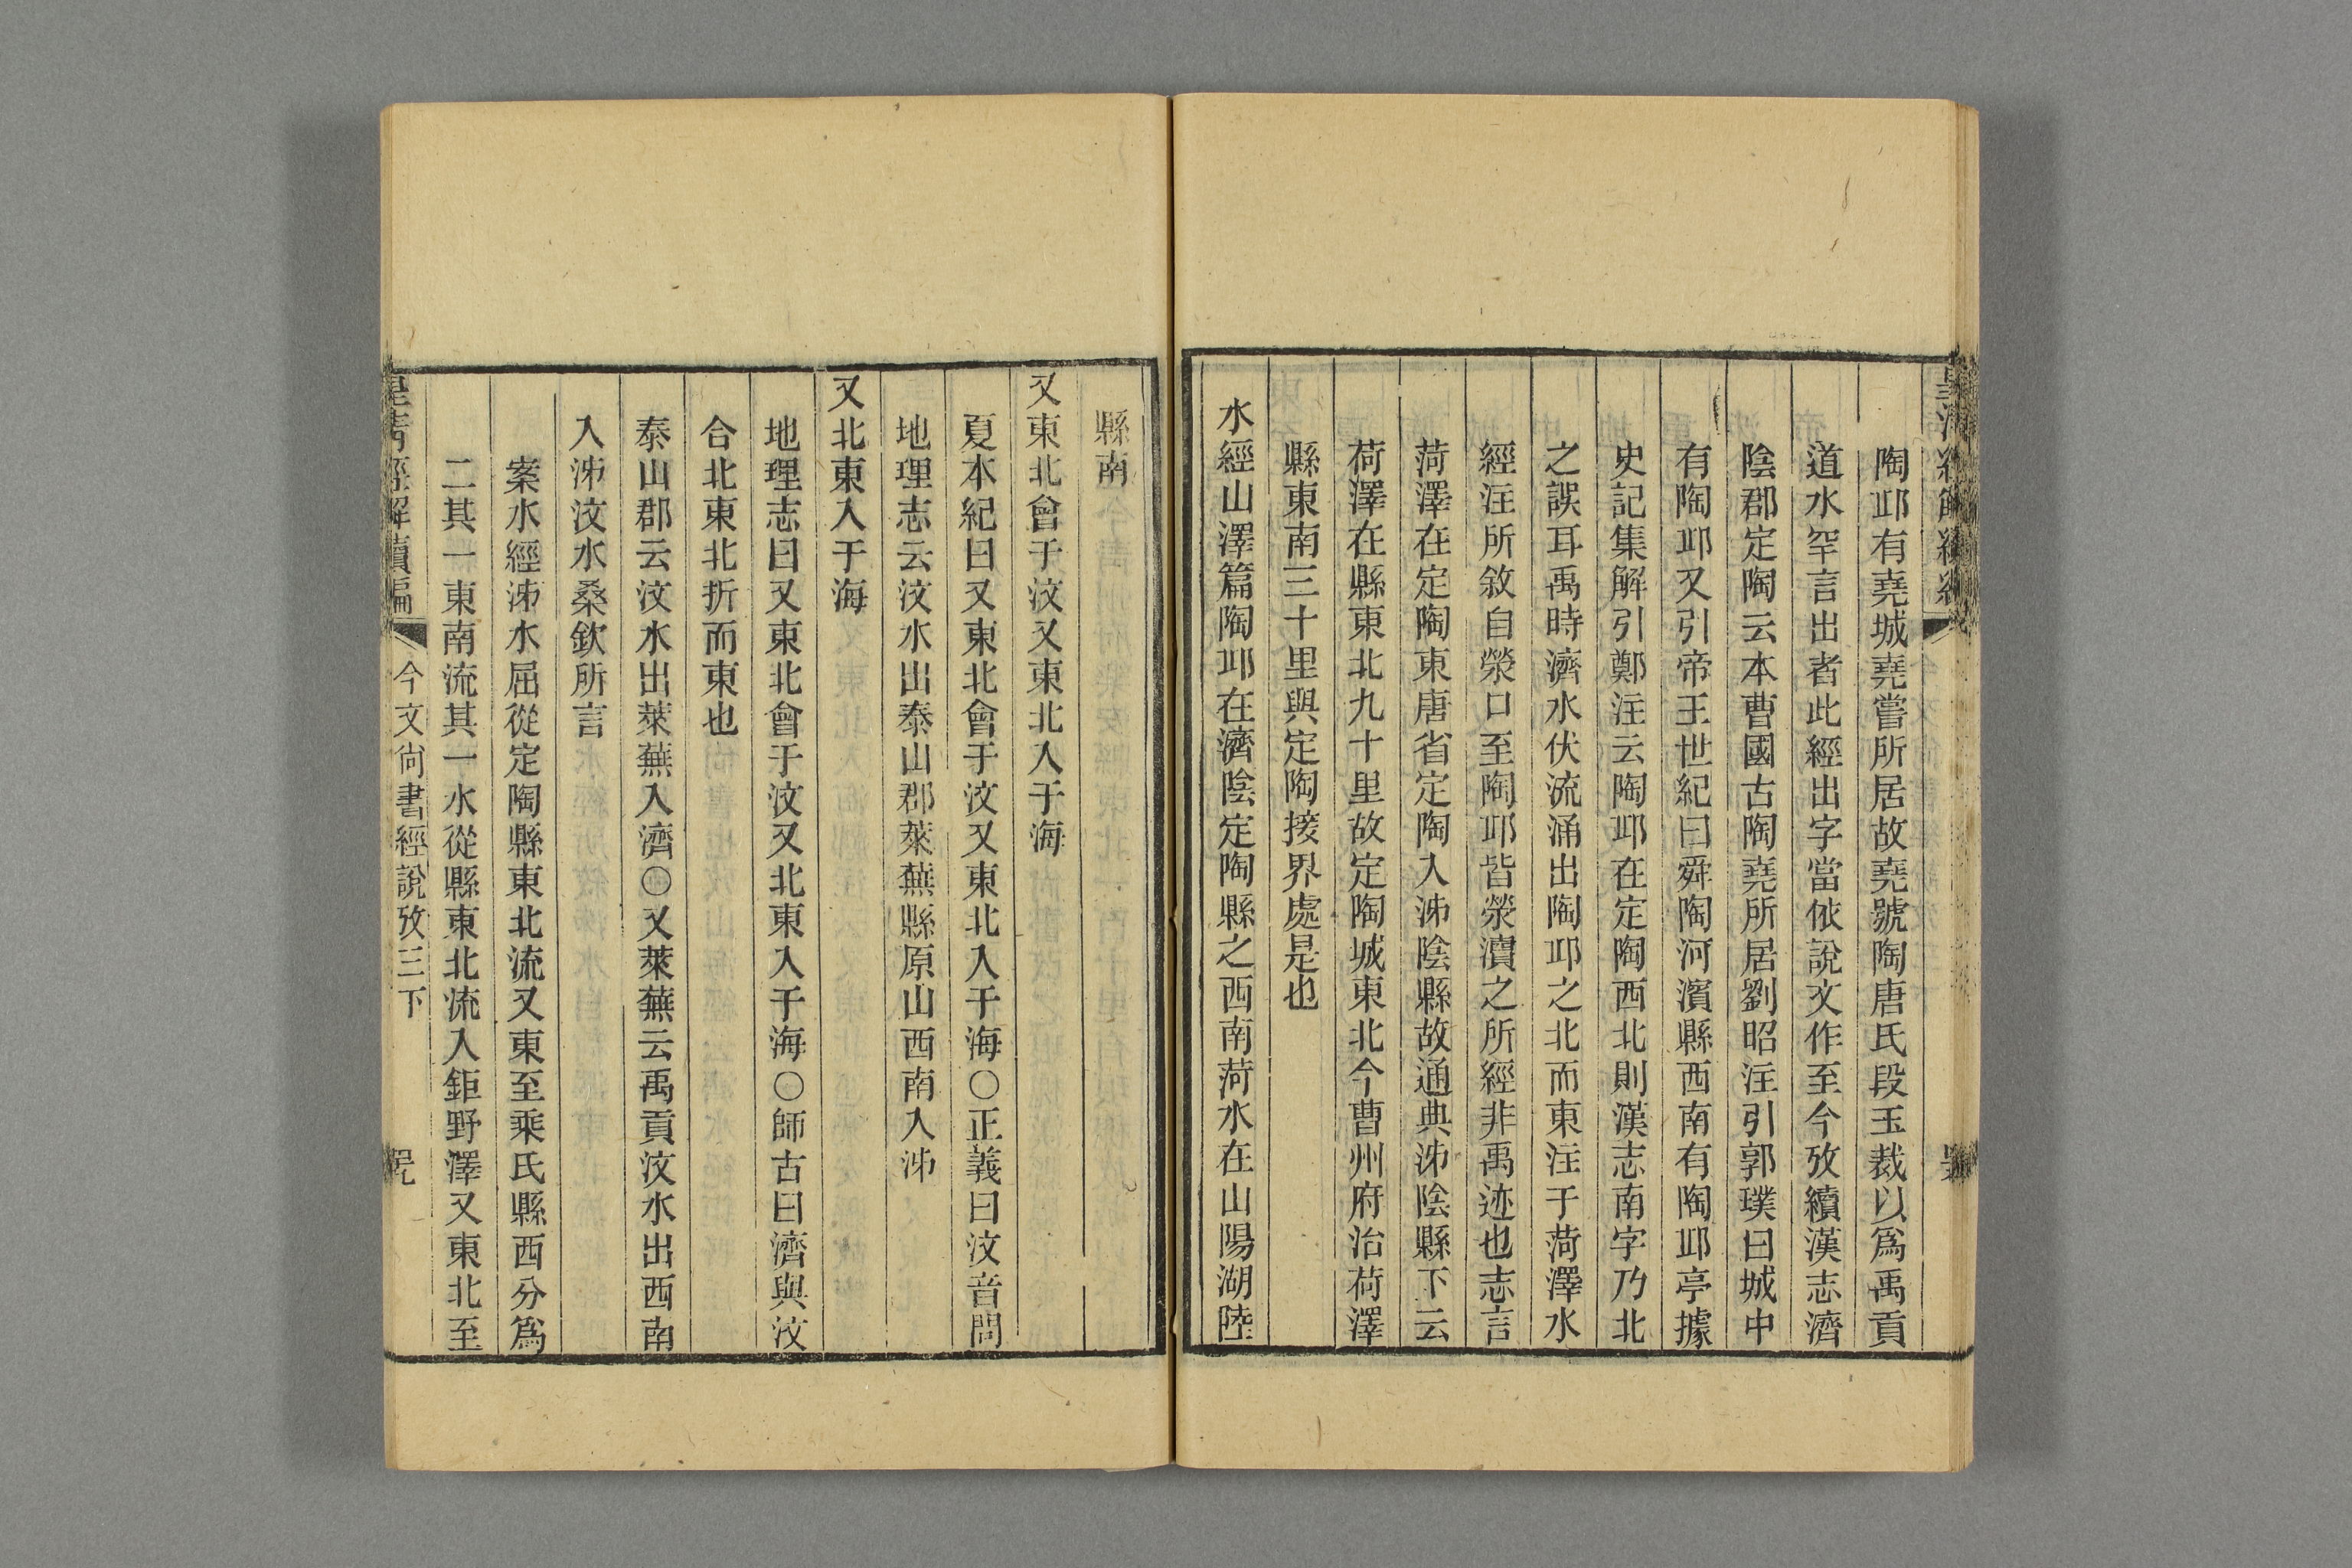 陶邱有堯城堯嘗所居故堯號陶唐氏段玉裁以爲禹貢
道水罕言出者此經出字當依說文作至今攷續漢志濟
陰郡定陶云本曹國古陶堯所居劉昭注引郭璞曰城中
有陶邱又引帝王世紀曰舜陶河濱縣西南有陶邱亭據
史記集解引鄭注云陶邱在定陶西北則漢志南字乃北
之誤耳禹時濟水伏流涌出陶邱之北而東注于菏澤水
經注所敘自滎口至陶邱皆滎瀆之所經非禹迹也志言
菏澤在定陶東唐省定陶入泲陰縣故通典泲陰縣下云
荷澤在縣東北九十里故定陶城東北今曹州府治荷澤
縣東南三十里與定陶接界處是也
水經山澤篇陶邱在濟陰定陶縣之西南菏水在山陽湖陸
縣南
又東北會于汶又東北入于海
夏本紀曰又東北會于汶又東北入于海○正義曰汶音問
地理志云汶水出泰山郡萊蕪縣原山西南入泲
又北東入于海
地理志曰又東北會于汶又北東入于海○師古曰濟與汶
合北東北折而東也
泰山郡云汶水出萊蕪入濟○又萊蕪云禹貢汶水出西南
入泲汶水桑欽所言
案水經泲水屈從定陶縣東北流又東至乘氏縣西分爲
二其一東南流其一水從縣東北流入鉅野澤又東北至
皇清經解續編
今文尙書經說攷三下